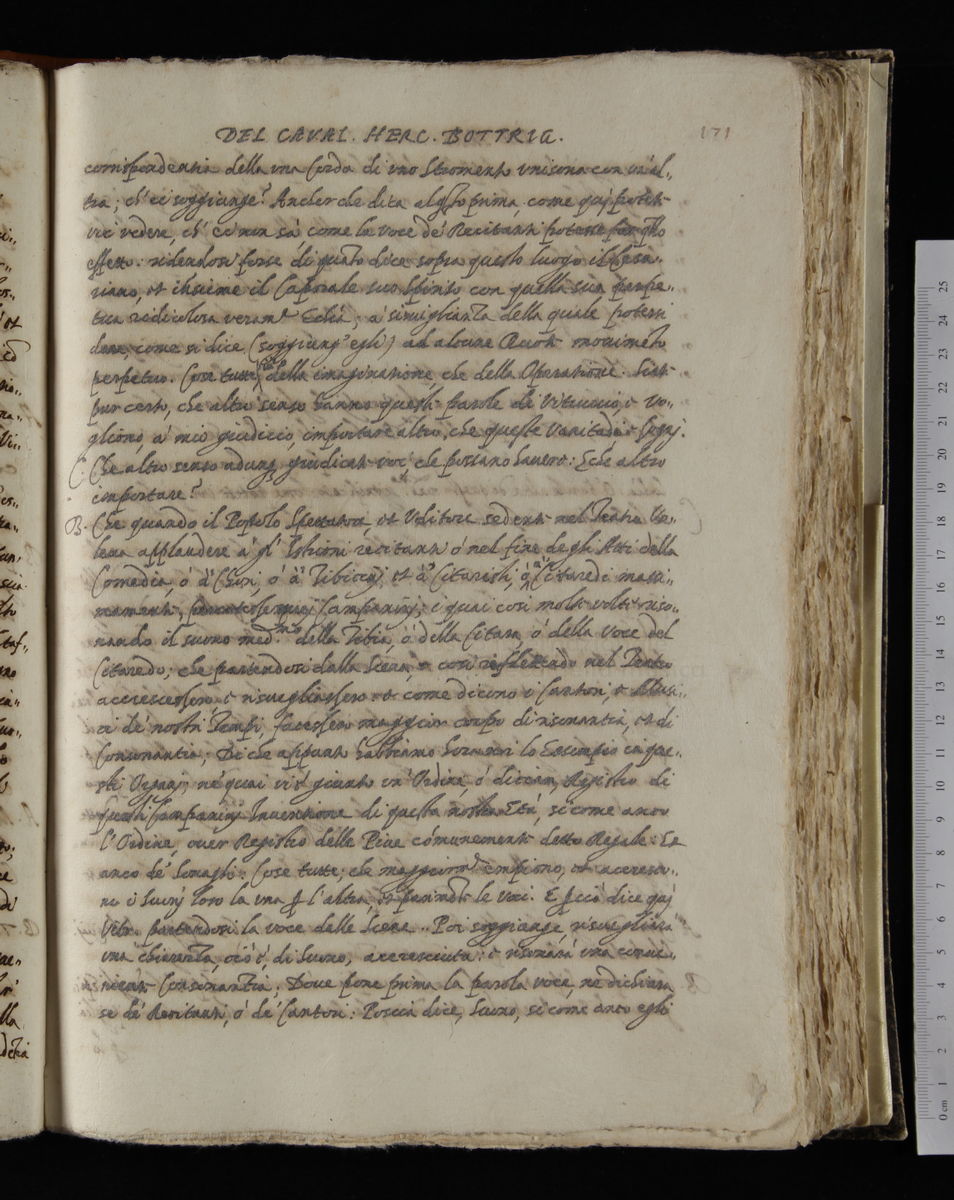 DEL CAVAL. HERC. BOTTRIG. 171
corrispondentia della una Corda di uno Stromento unisona con un'al..
tra; ch' ei soggiunge? Anchor che dica prima, come quì potete
voi vedere, ch' ei non sà, come la voce de Recitanti potesse far
effetto: ridendosi forse di quāto dice sopra questo luogo il Cesa..
riano, et insieme il Caporale suo con quella sua perpe..
tua ridicolosa veramte Echià; a simiglianza della quale potersi
dare, come si dice (soggiung' egli) ad alcune Ruote movimēto
perpetuo. Cose tutte della imaginatione, che della Operatione. Siate
pur certo, che altro senso hanno queste parole di Vitruvio, e vo..
gliono, a mio giudicio, importare altro, che queste Vanitadi e Sogni.
C. Che altro senso adunq giudicate voi, che possano havere: E che altro
importare?
B. Che quando il Popolo Spettatore et Uditore sedente nel Teatro Vo..
leva applaudere a gl' Istrioni recitanti ò nel fine degli Atti della
Comedia, ò a Chori, ò a Tibicini et a Citaristi, ò a Citaredi massi..
mamente, Campanini; i quai così molte volte riso..
nando il suono medmo della Tibia, ò della Citara, ò della Voce del
Citaredo; che partendosi dalla Scena, e così riflettēdo nel Teatro
accrescessero e risvegliassero et come dicono i Cantori, e Musi..
ci de nostri Tempi, facessero maggior corpo di risonantia, et di
Consonantia; Di che appunto habbiamo hormai lo Essempio in que..
sti Organi; ne quai vi s' giunto un' Ordine, ò diciam, Registro di
questi Campanini Inventione di questa nostra Età, sì come anco
l' Ordine, over Registro delle Pive cōmunemente detto Regale: Et
anco de' Cornetti. Cose tutte, che maggiormte empiono, et accresco..
no i Suoni loro la una l' altra, et parimente le voci. E dice quì
Vitr. partendosi la voce dalle Scene.. Poi soggiunge, risvegliarà
una chiarezza, ciò è, di Suono, accresciuta: e risonarà una conve..
niente Consonantia; Dove pone prima la parola voce, ne dichiara
se de' Recitanti, ò de' Cantori: Poscia dice, Suono, sì come anco egli